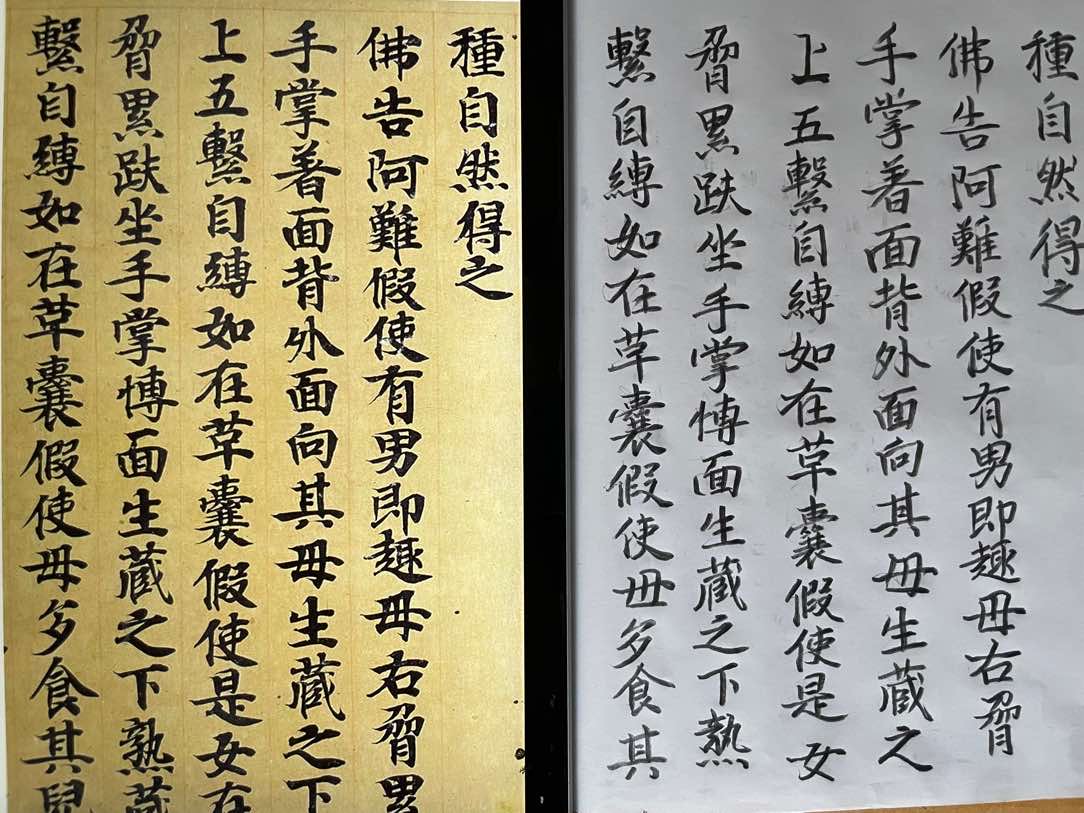 種自然得之
佛告阿難假使有男即趣母右脅累
手掌著面背外面向其母生蔵之下
上五繫自縛如在革囊假使是女在
脅累趺坐手掌博面生蔵之下熟蔵
繫自縛如在革囊假使母多食其兒
種自然得之
佛告阿難假使有男即趣母右脅
手掌著面背外面向其母生蔵之
上五繫自縛如在革囊假使是女
脅累趺坐手掌博面生蔵之下熟
繫自縛如在革囊假使母多食其